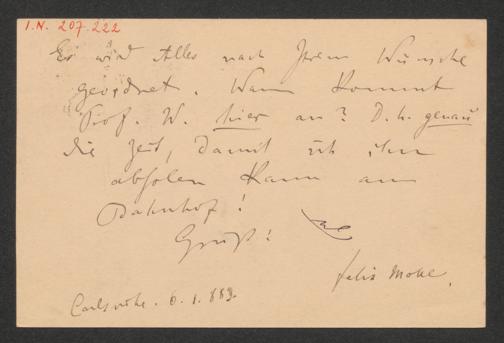 I.N. 207.222
Es wird Alles nach Ihrem Wunsche
geordnet. Wann kommt
Prof. W. hier an? D.h. genau
die Zeit, damit ich ihn
abholen kann am
Bahnhof!
Gruß!
Felix Mottl.
Carlsruhe. 6.1.